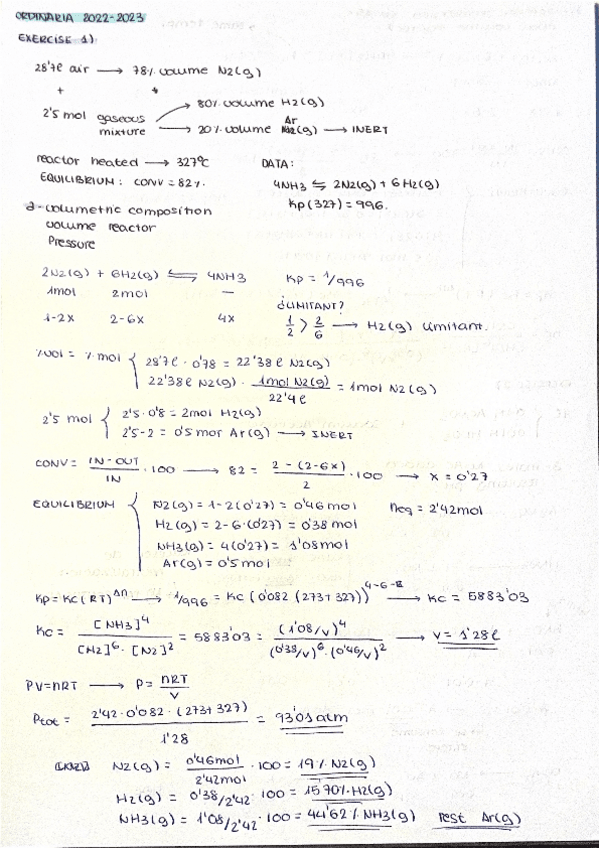 ORDINARIA 2022-2023
EXERCISE 1).
28'7l air → 78% volume N2(g)
+ +
2'5 mol gaseous mixture → 80% volume H2(g)
→ 20% volume Ar (g) → INERT
reactor heated → 327ºC DATA:
EQUILIBRIUM: CONV = 82%. 4NH3 ⇆ 2N2(g) + 6H2(g)
Kp(327) = 996.
a-volumetric composition
volume reactor
Pressure
2N2(g) + 6H2(g) ⇆ 4NH3 Kp = 1/996
1mol 2mol — ¿LIMITANT?
1-2x 2-6x 4x 1/2 > 2/6 → H2(g) limitant.
%vol = % mol { 28'7l · 0'78 = 22'38l N2(g)
22'38l N2(g) · 1mol N2(g)/22'4l = 1mol N2(g)
2'5 mol { 2'5·0'8 = 2mol H2(g)
2'5-2 = 0'5 mor Ar(g) → INERT
CONV = IN-OUT/IN · 100 → 82 = 2-(2-6x)/2 · 100 → x = 0'27
EQUILIBRIUM { N2(g) = 1-2(0'27) = 0'46mol neq = 2'42mol
H2(g) = 2-6·(0'27) = 0'38 mol
NH3(g) = 4(0'27) = 1'08mol
Ar(g) = 0'5 mol
Kp = Kc(RT)^Δn → 1/996 = Kc (0'082 (273+327))^4-6-2 → Kc = 5883'03
Kc = [NH3]^4/[H2]^6·[N2]^2 = 5883'03 = (1'08/v)^4/(0'38/v)^6·(0'46/v)^2 → V = 1'28l
PV=nRT → P = nRT/V
Ptot = 2'42·0'082·(273+327)/1'28 = 93'03 atm
N2(g) = 0'46mol/2'42mol · 100 = 19% N2(g)
H2(g) = 0'38/2'42 · 100 = 15'70% H2(g)
NH3(g) = 1'08/2'42 · 100 = 44'62% NH3(g) rest Ar(g)